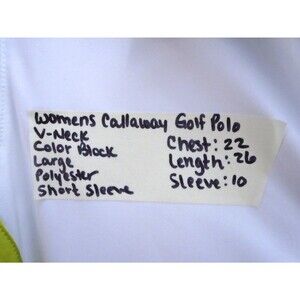 Womens Callaway Golf Polo
V-Neck
Color Block
Large
Polyester
Short Sleeve
Chest: 22
Length: 26
Sleeve: 10